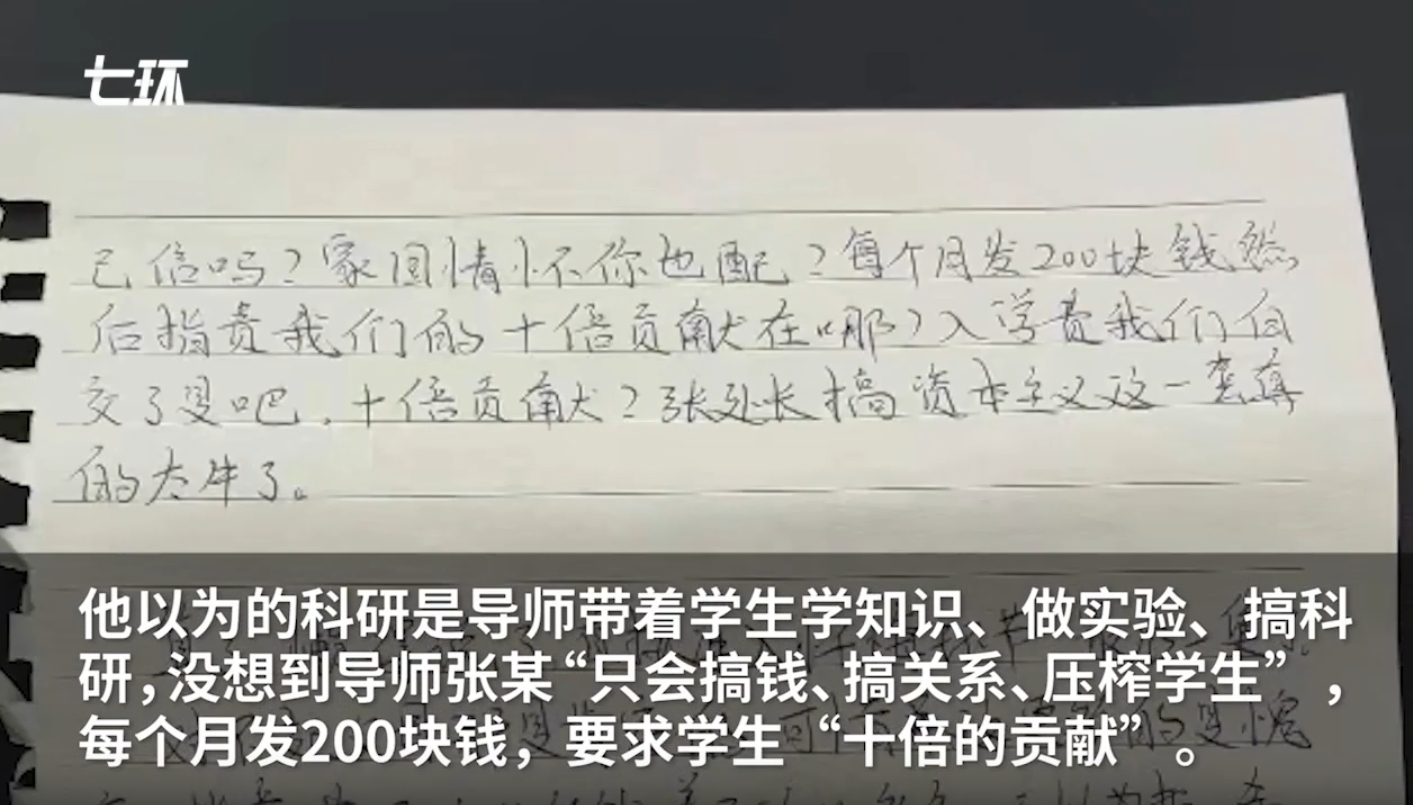 七环
己信吗?家国情怀你也配?每个月发200块钱然
后指责我们的十倍贡献在哪?入学费我们白
交了是吧，十倍贡献?张处长搞资本主义这一套真
的太牛了。
他以为的科研是导师带着学生学知识、做实验、搞科
研，没想到导师张某“只会搞钱、搞关系、压榨学生”，
每个月发200块钱，要求学生“十倍的贡献”。